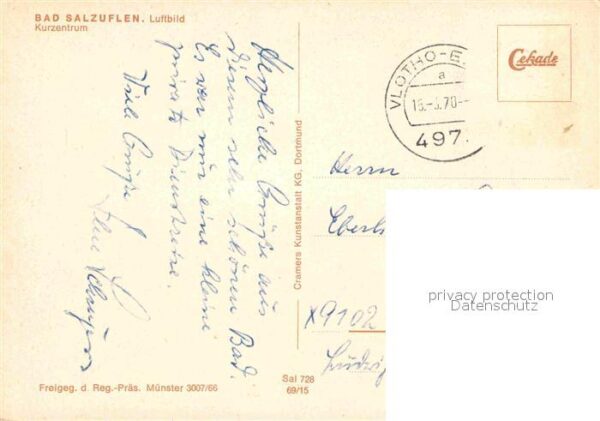 BAD SALZUFLEN. Luftbild
Kurzentrum
Cekade
VLOTHO-E
a
-.70--
497.
Herzliche Grüße aus
diesem sehr schönen Bad.
Es war nur eine kleine
private Dienstreise.
Viele Grüße
Cramers Kunstanstalt KG. Dortmund
Herrn
Eberh
privacy protection
Datenschutz
X9102
Ludwig
Freigeg. d. Reg.-Präs. Münster 3007/66
Sal 728
69/15